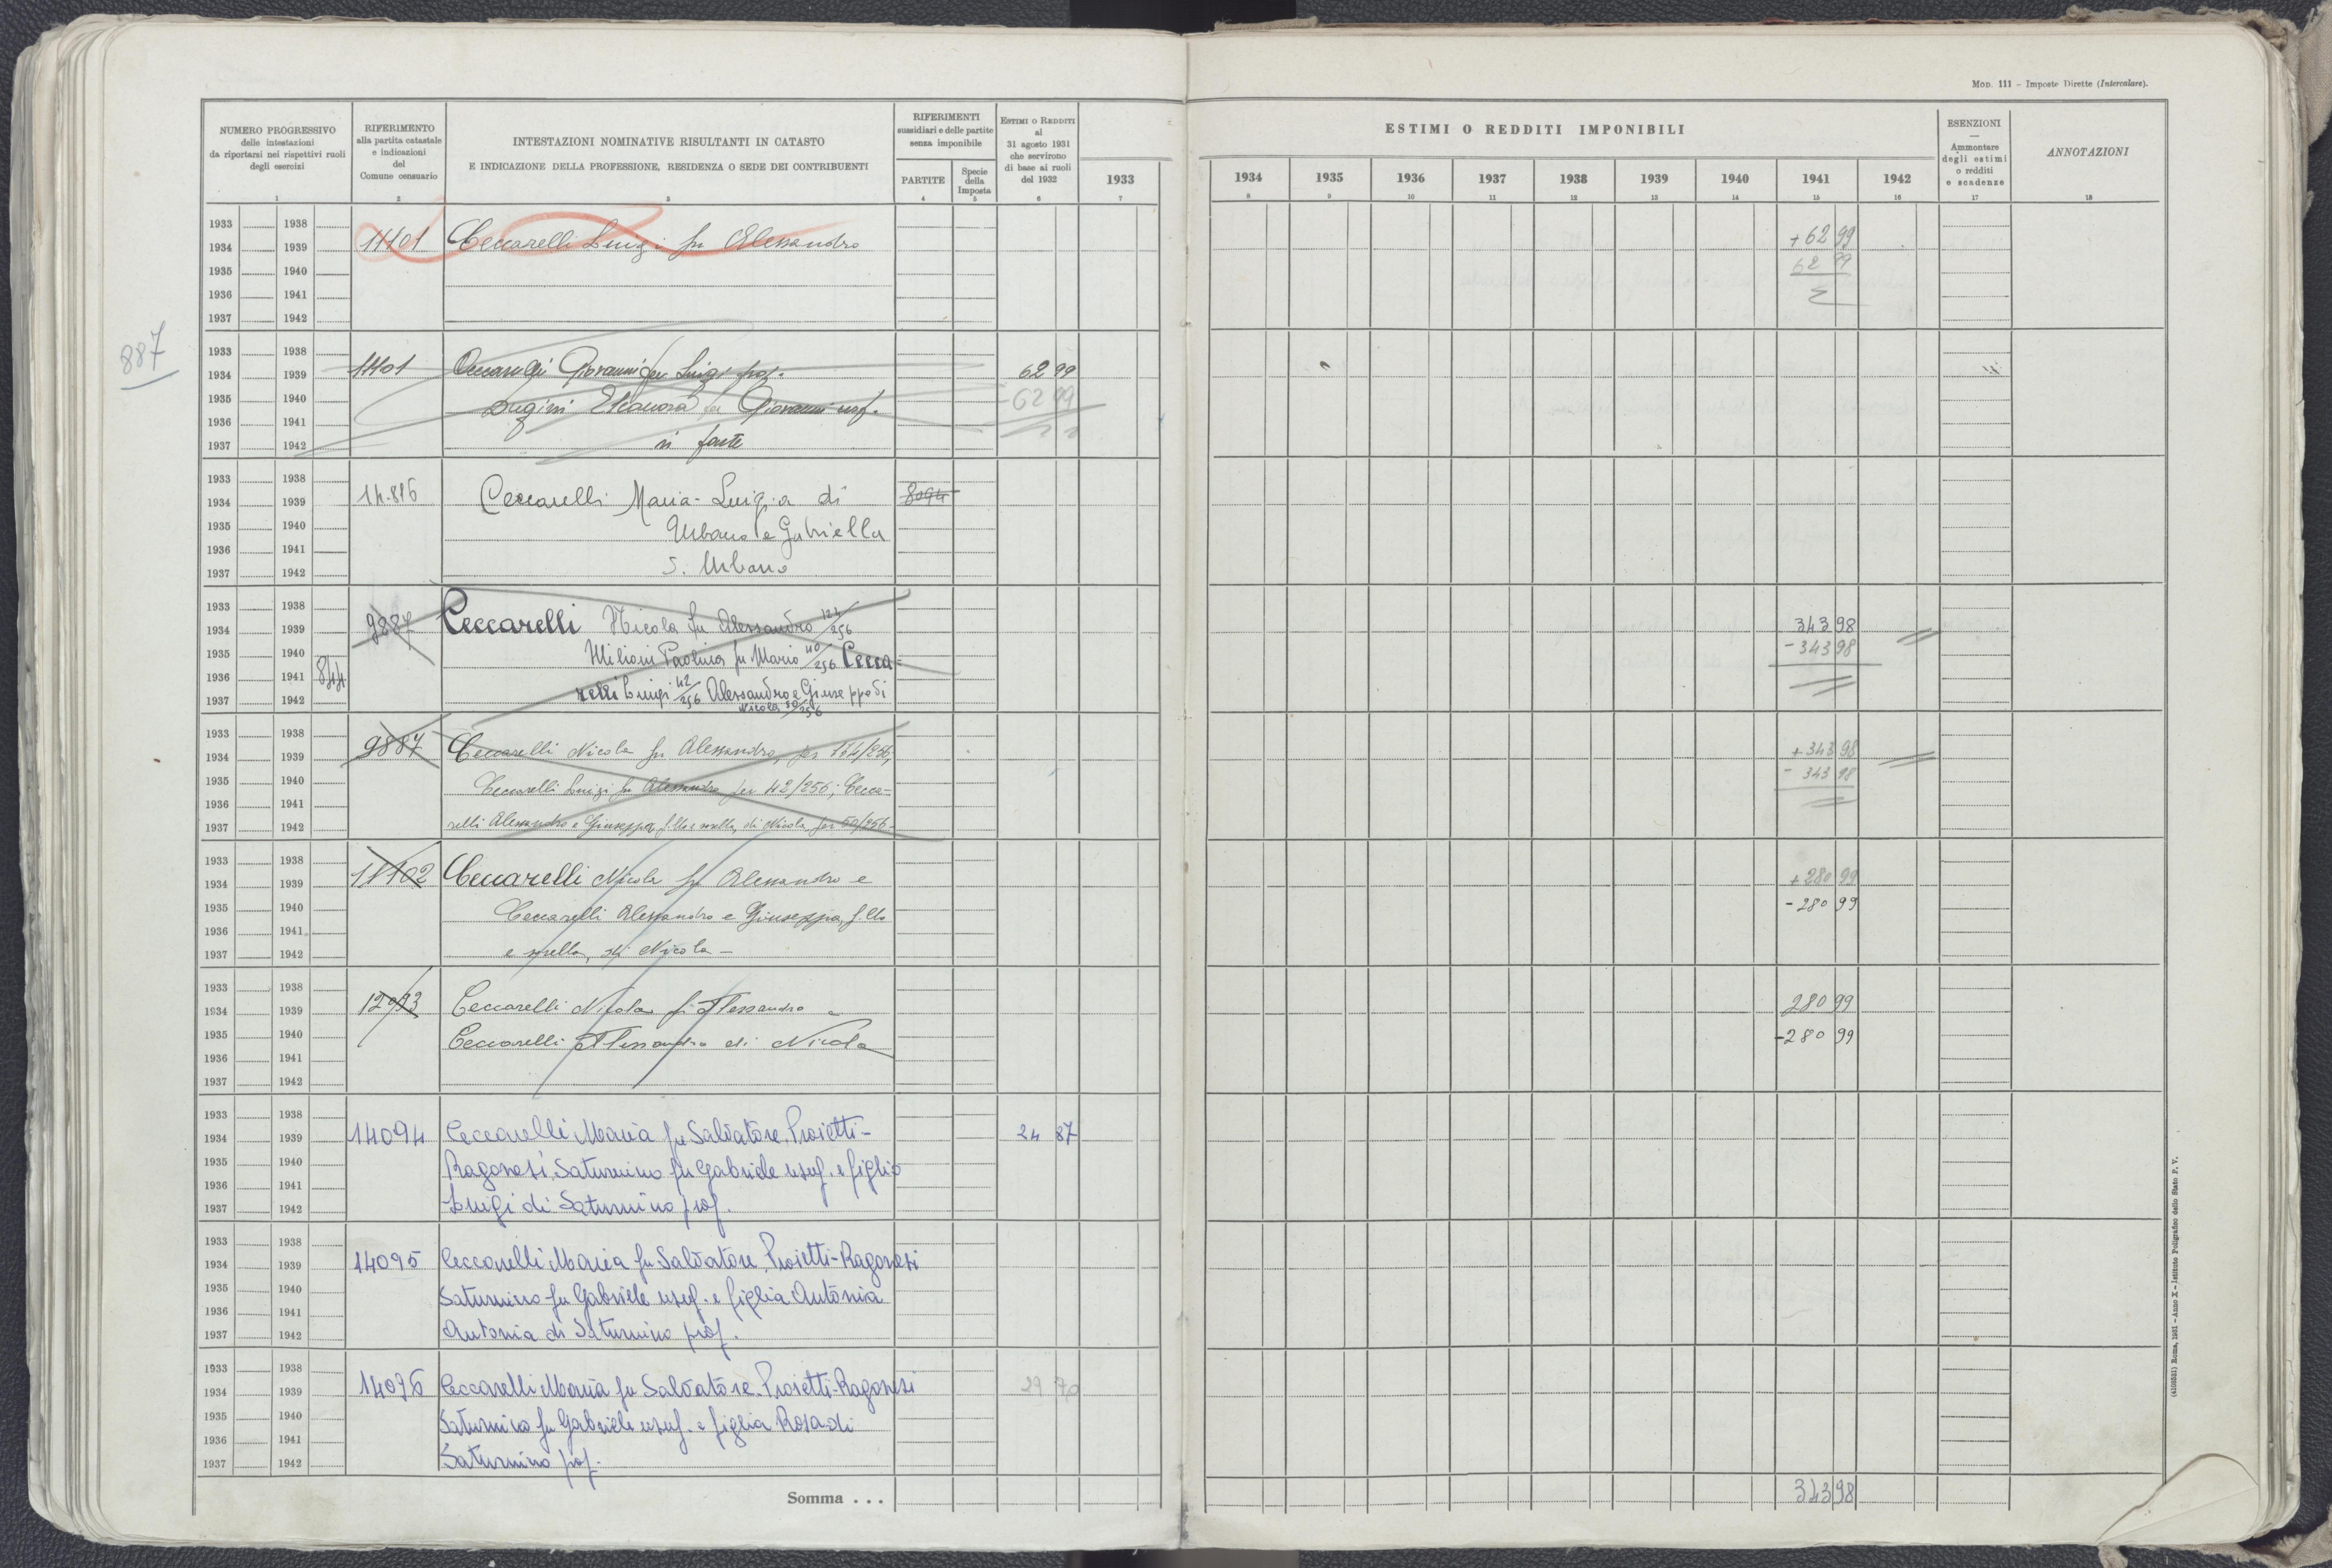 Mod. 111 - Imposte Dirette (Intercalare).
NUMERO PROGRESSIVO
delle intestazioni
da riportarsi nei rispettivi ruoli
degli esercizi
1
RIFERIMENTO
alla partita catastale
e indicazioni
del
Comune censuario
2
INTESTAZIONI NOMINATIVE RISULTANTI IN CATASTO
E INDICAZIONE DELLA PROFESSIONE, RESIDENZA O SEDE DEI CONTRIBUENTI
3
RIFERIMENTI
sussidiari e delle partite
senza imponibile
PARTITE
4
Specie
della
Imposta
5
ESTIMI O REDDITI
al
31 agosto 1931
che servirono
di base ai ruoli
del 1932
6
1933
7
ESTIMI O REDDITI IMPONIBILI
1934 1935 1936 1937 1938 1939 1940 1941 1942
8 9 10 11 12 13 14 15 16
ESENZIONI
Ammontare
degli estimi
o redditi
e scadenze
17
ANNOTAZIONI
18
1933 1938
1934 1939 11101 Ceccarelli Luigi fu Alessandro +62 99
1935 1940 62 99
1936 1941
1937 1942
887
1933 1938
1934 1939 11101 Giovanni fu Luigi prop. 62 99
1935 1940 Eleonora fu Giovanni usuf. -62 99
1936 1941
1937 1942 in parte
1933 1938
1934 1939 14.816 Ceccarelli Maria-Luigia di 8094
1935 1940 Urbano e Gabriella
1936 1941
1937 1942 S. Urbano
1933 1938
1934 1939 9887 Ceccarelli Nicola fu Alessandro 124/256 343 98
1935 1940 Milioni Paolina fu Mario 40/256 Cecca- -343 98
1936 1941 844
1937 1942 relli Luigi 42/256 Alessandro e Giuseppa di
Nicola 50/256
1933 1938
1934 1939 9887 Ceccarelli Nicola fu Alessandro, per 174/256, +343 98
1935 1940 Ceccarelli Luigi fu Alessandro per 42/256; Cecca- - 343 98
1936 1941
1937 1942 relli Alessandro e Giuseppa, f.llo e sorella, di Nicola, per 50/256-
1933 1938
1934 1939 11102 Ceccarelli Nicola fu Alessandro e +280 99
1935 1940 Ceccarelli Alessandro e Giuseppa, f.llo -280 99
1936 1941
1937 1942 e sorella, di Nicola -
1933 1938
1934 1939 12093 Ceccarelli Nicola fu Alessandro e 280 99
1935 1940 Ceccarelli Alessandro di Nicola -280 99
1936 1941
1937 1942
1933 1938
1934 1939 14094 Ceccarelli Maria fu Salvatore, Proietti- 24 87
1935 1940 Ragonesi Saturnino fu Gabriele usuf. e figlio
1936 1941
1937 1942 Luigi di Saturnino prop.
1933 1938
1934 1939 14095 Ceccarelli Maria fu Salvatore, Proietti-Ragonesi
1935 1940 Saturnino fu Gabriele usuf. e figlia Antonia
1936 1941
1937 1942 Antonia di Saturnino prop.
1933 1938
1934 1939 14096 Ceccarelli Maria fu Salvatore, Proietti-Ragonesi 29 70
1935 1940 Saturnino fu Gabriele usuf. e figlia Rosa di
1936 1941
1937 1942 Saturnino prop.
Somma . . . 343 98
(4108531) Roma, 1931 - Anno X - Istituto Poligrafico dello Stato P. V.